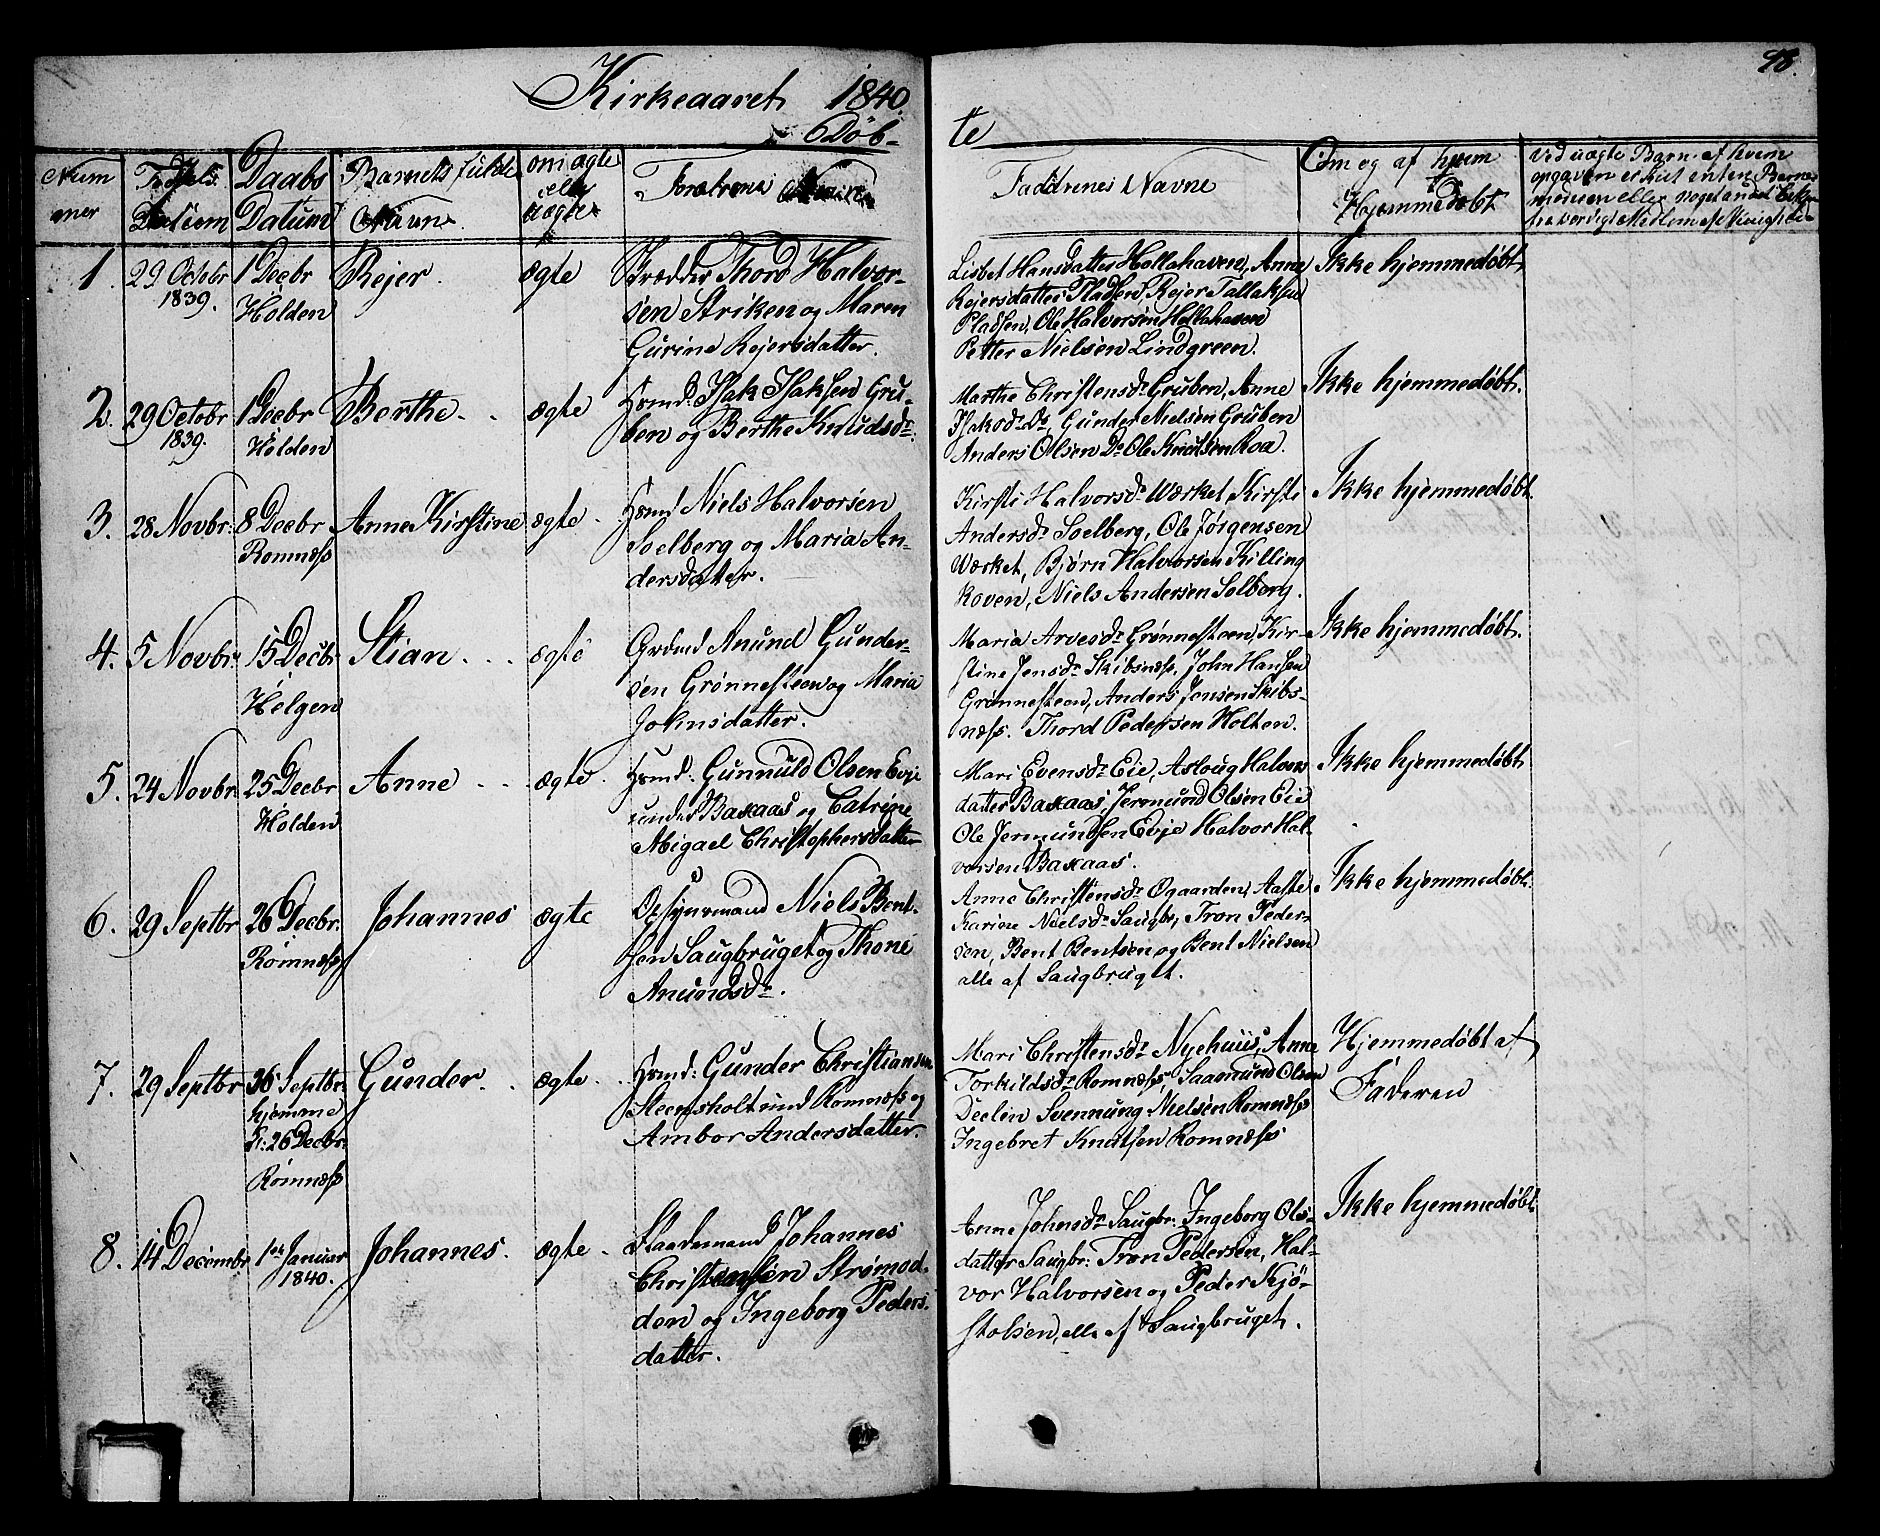 98.
Kirkeaaret 1840.
Døb-
te
Num
mer
Fødsels
Datum
Daabs
Datum
Barnets fulde
Navn.
om ægte
eller
uægte
Forældrenes Navne
Faddrenes Navne
Om og af hvem
Hjemmedøbt
Ved uægte Barn. af hvem
opgaven er skeet enten
1.
29 Octobr
1839.
1 Decbr
Holden
Rejer.
ægte
Thord Halvor-
sen Striken og Maren
Gurine Rejersdatter.
Lisbet Hansdatter Hollahaven, Anne
Rejersdatter Pladsen, Rejer Tallaksen
Pladsen, Ole Halvorsen Hollahaven
Petter Nielsen Lindgreen.
Ikke hjemmedøbt
2.
29 Octobr
1839.
1 Decbr
Holden
Berthe. . .
ægte
Huusmd: Isak Isaksen Gru-
ben og Berthe Knudsdr.
Marthe Christensdr Gruben, Anne
Isaksdr Do, Gunder Nielsen Gruben
Anders Olsen Do Ole Knutsen Roa.
Ikke hjemmedøbt.
3.
28 Novbr:
8 Decbr
Romnæss
Anne Kirstine
ægte.
Niels Halvorsen
Soelberg og Maria An-
dersdatter.
Kirsti Halvorsdr Værket, Kirsti
Andersdr Soelberg, Ole Jørgensen
Værket, Bjørn Halvorsen Killing
koven, Niels Andersen Solberg.
Ikke hjemmedøbt
4.
5 Novbr:
15 Decbr
Helgen
Stian. . . .
ægte
Grdmd Anund Gunder-
sen Grønnesteen og Maria
Johnsdatter.
Maria Arvesdr Grønnesteen, Kir-
stine Jensdr Skibsnæss, John Hansen
Grønnesteen, Anders Jensen Skibs-
næss. Thord Pedersen Holten.
Ikke hjemmedøbt.
5.
24 Novbr:
25 Decbr
Holden
Anne . . .
ægte.
Huusmd: Gunnuld Olsen Evje
under Baxaas og Catrine
Abigael Christophersdatter
Mari Evensdr Eie, Asloug Halvors
datter Baxaas, Jermund Olsen Eie
Ole Jermundsen Evje Halvor Hal-
vorsen Baxaas.
Ikke hjemmedøbt
6.
29 Septbr
26 Decbr.
Romnæss
Johannes
ægte
Opsynsmand Niels Bent-
sen Saugbruget og Thone
Anundsdr.
Anne Christensdr Ogaarden, Aaste
Karine Nielsdr Saugbr, Tron Peder-
sen, Bent Bentsen og Bent Nielsen
alle af Saugbruget.
Ikke hjemmedøbt.
7.
29 Septbr
36 Septbr.
hjemme
K: 26 Decbr.
Romnæss
Gunder. .
ægte. .
Huusmd: Gunder Christiansen
Steensholt und Romnæss og
Ambor Andersdatter.
Mari Christensdr Nyehuus, Anne
Torkildsdr Romnæss, Saamund Olsen
Deelin Svennung Nielsen Romnæss
Ingebret Knutsen Romnæss
Hjemmedøbt af
Faderen
8.
14 Decembr
1ste Januar
1840.
Johannes.
ægte.
Johannes
Christensen Strømod-
den og Ingeborg Peders-
datter.
Anne Johnsdr Saugbr: Ingeborg Ols-
datter Saugbr: Tron Pedersen, Hal-
vor Halvorsen og Peder Kjø-
stolsen, alle af Saugbruget.
Ikke hjemmedøbt